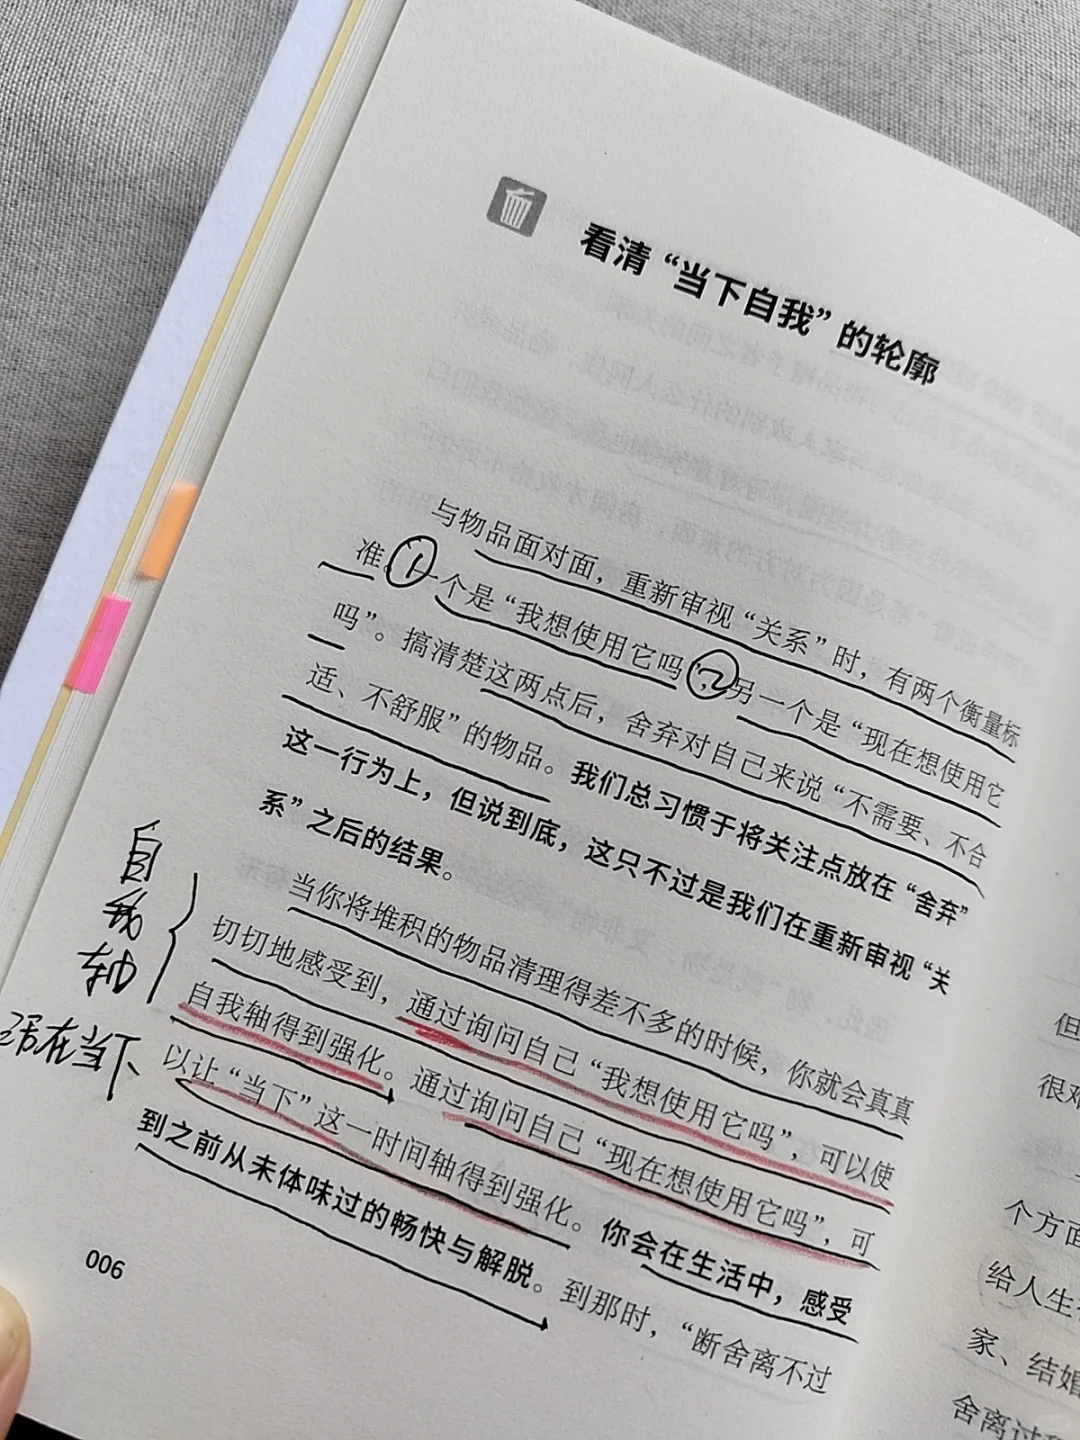 看清“当下自我”的轮廓
与物品面对面，重新审视“关系”时，有两个衡量标
准。①一个是“我想使用它吗”，②另一个是“现在想使用它
吗”。搞清楚这两点后，舍弃对自己来说“不需要、不合
适、不舒服”的物品。我们总习惯于将关注点放在“舍弃”
这一行为上，但说到底，这只不过是我们在重新审视“关
系”之后的结果。
当你将堆积的物品清理得差不多的时候，你就会真真
切切地感受到，通过询问自己“我想使用它吗”，可以使
自我轴得到强化。通过询问自己“现在想使用它吗”，可
以让“当下”这一时间轴得到强化。你会在生活中，感受
到之前从未体味过的畅快与解脱。到那时，“断舍离不过
自我轴
活在当下
006
但
很难
个方面
给人生
家、结婚
舍离过